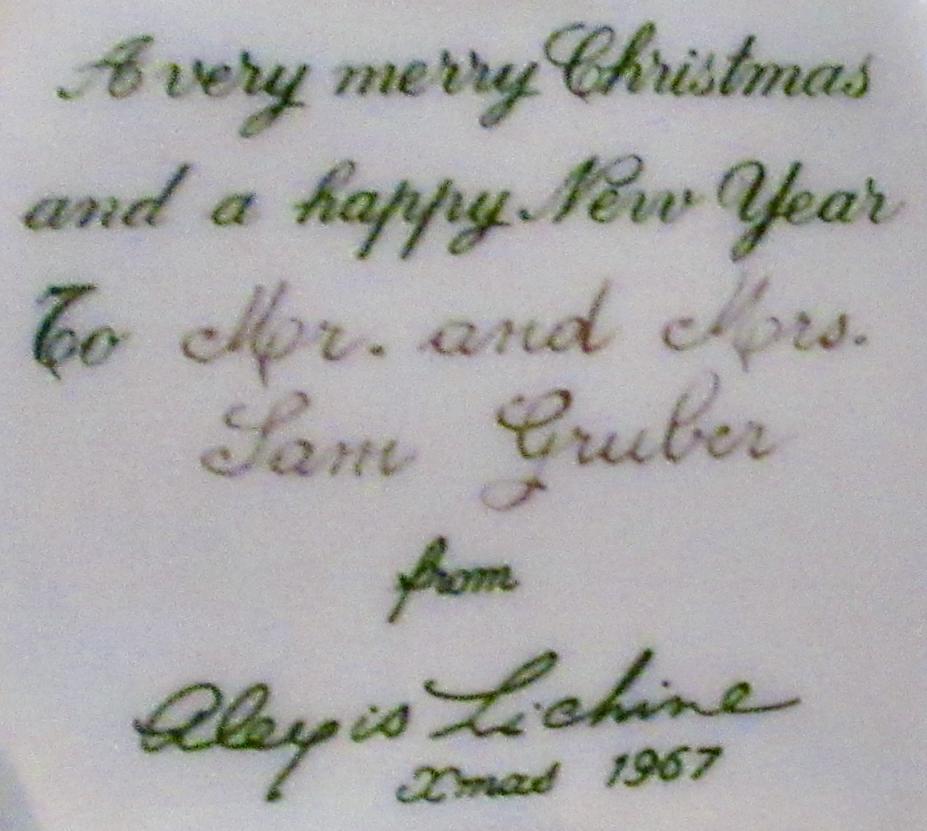 A very merry Christmas
and a happy New Year
To Mr. and Mrs.
Sam Gruber
from
Alexis Lichine
Xmas 1967